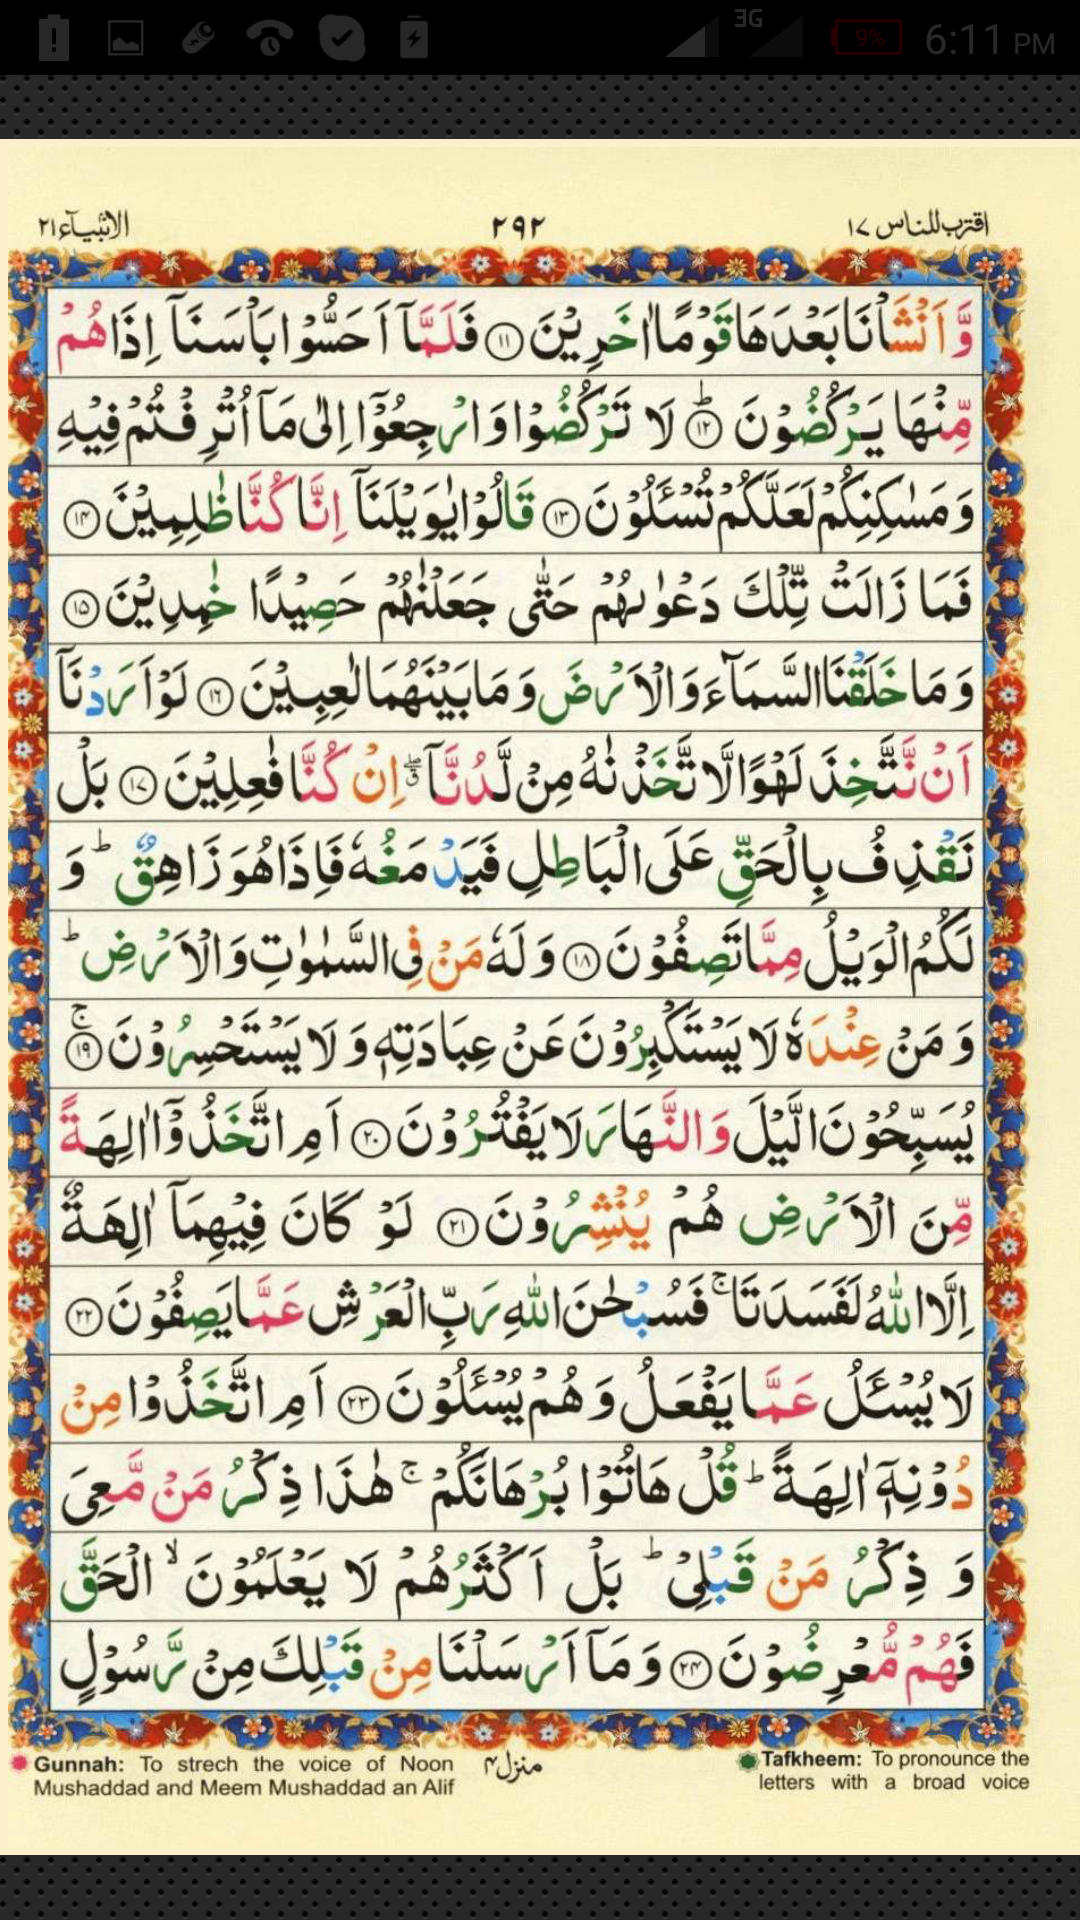 3G 9% 6:11 PM
اقترب للناس ١٧ ٢٩٢ الانبیآء ٢١
وَّاَنْشَاْنَا بَعْدَهَا قَوْمًا اٰخَرِيْنَ ۝١١ فَلَمَّاۤ اَحَسُّوْا بَاْسَنَاۤ اِذَا هُمْ
مِّنْهَا يَرْكُضُوْنَ ؕ۝١٢ لَا تَرْكُضُوْا وَارْجِعُوْۤا اِلٰى مَاۤ اُتْرِفْتُمْ فِيْهِ
وَمَسٰكِنِكُمْ لَعَلَّكُمْ تُسْـَٔلُوْنَ ۝١٣ قَالُوْا يٰوَيْلَنَاۤ اِنَّا كُنَّا ظٰلِمِيْنَ ۝١٤
فَمَا زَالَتْ تِّلْكَ دَعْوٰىهُمْ حَتّٰى جَعَلْنٰهُمْ حَصِيْدًا خٰمِدِيْنَ ۝١٥
وَمَا خَلَقْنَا السَّمَآءَ وَالْاَرْضَ وَمَا بَيْنَهُمَا لٰعِبِيْنَ ۝١٦ لَوْ اَرَدْنَاۤ
اَنْ نَّتَّخِذَ لَهْوًا لَّا تَّخَذْنٰهُ مِنْ لَّدُنَّاۤ ۖق اِنْ كُنَّا فٰعِلِيْنَ ۝١٧ بَلْ
نَقْذِفُ بِالْحَقِّ عَلَى الْبَاطِلِ فَيَدْمَغُهٗ فَاِذَا هُوَ زَاهِقٌ ؕ وَ
لَكُمُ الْوَيْلُ مِمَّا تَصِفُوْنَ ۝١٨ وَلَهٗ مَنْ فِى السَّمٰوٰتِ وَالْاَرْضِ ؕ
وَمَنْ عِنْدَهٗ لَا يَسْتَكْبِرُوْنَ عَنْ عِبَادَتِهٖ وَلَا يَسْتَحْسِرُوْنَ ۚ۝١٩
يُسَبِّحُوْنَ الَّيْلَ وَالنَّهَارَ لَا يَفْتُرُوْنَ ۝٢٠ اَمِ اتَّخَذُوْۤا اٰلِهَةً
مِّنَ الْاَرْضِ هُمْ يُنْشِرُوْنَ ۝٢١ لَوْ كَانَ فِيْهِمَاۤ اٰلِهَةٌ
اِلَّا اللّٰهُ لَفَسَدَتَا ۚ فَسُبْحٰنَ اللّٰهِ رَبِّ الْعَرْشِ عَمَّا يَصِفُوْنَ ۝٢٢
لَا يُسْـَٔلُ عَمَّا يَفْعَلُ وَهُمْ يُسْـَٔلُوْنَ ۝٢٣ اَمِ اتَّخَذُوْا مِنْ
دُوْنِهٖۤ اٰلِهَةً ؕ قُلْ هَاتُوْا بُرْهَانَكُمْ ۚ هٰذَا ذِكْرُ مَنْ مَّعِىَ
وَ ذِكْرُ مَنْ قَبْلِىْ ؕ بَلْ اَكْثَرُهُمْ لَا يَعْلَمُوْنَ ۙ الْحَقَّ
فَهُمْ مُّعْرِضُوْنَ ۝٢٤ وَمَاۤ اَرْسَلْنَا مِنْ قَبْلِكَ مِنْ رَّسُوْلٍ
Gunnah: To strech the voice of Noon
Mushaddad and Meem Mushaddad an Alif
منزل ٤
Tafkheem: To pronounce the
letters with a broad voice